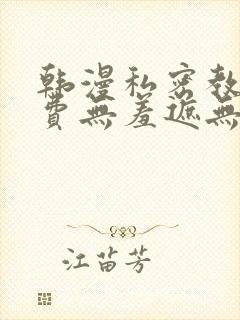 韩漫私密教
费無羞遮無
江苗芳